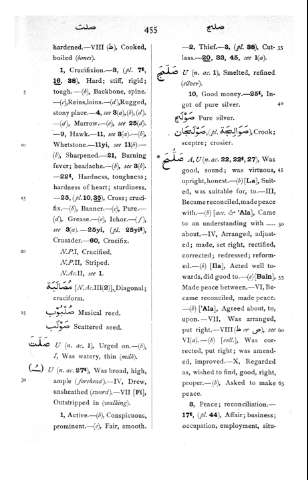 صلت 455 صلح
hardened.—VIII (ط), Cooked,
boiled (bones).
1, Crucifixion.—3, (pl. 7ᵗ,
16, 38), Hard; stiff, rigid;
5 tough.—(b), Backbone, spine.
—(c), Reins, loins.—(d), Rugged,
stony place.—4, see 3(a),(b),(d).
—(d), Marrow.—(e), see 25(d).
—9, Hawk.—11, see 3(a)—(b),
10 Whetstone.—11yi, see 11(b)—
(b), Sharpened.—21, Burning
fever; headache.—(b), see 3(b).
—22ᵗ, Hardness, toughness;
hardness of heart; sturdiness.
15 —25, (pl. 10, 35), Cross; cruci-
fix.—(b), Banner.—(c), Pure.—
(d), Grease.—(e), Ichor.—(f),
see 3(a).—25yi, (pl. 25yiᵗ),
Crusader.—60, Crucifix.
20 N.P.I, Crucified.
N.P.II, Striped.
N.Ac.II, see 1.
[N.Ac.III(2)], Diagonal;
cruciform.
25 صلبوب Musical reed.
صولب Scattered seed.
صلت U (n. ac. 1), Urged on.—(b),
I, Was watery, thin (milk).
U (n. ac. 27ᵗ), Was broad, high,
30 ample (forehead).—IV, Drew,
unsheathed (sword).—VII [Fī],
Outstripped in (walking).
1, Active.—(b), Conspicuous,
prominent.—(c), Fair, smooth.
—2, Thief.—3, (pl. 38), Cut- 35
lass.—20, 33, 45, see 1(a).
صلج U (n. ac. 1), Smelted, refined
(silver).
10, Good money.—25ᵗ, In-
got of pure silver. 40
صولج Pure silver.
صولجان (pl. صوالجة), Crook;
sceptre; crosier.
صلح A, U (n. ac. 22, 22ᵗ, 27), Was
good, sound; was virtuous, 45
upright, honest.—(b) [La], Suit-
ed, was suitable for, to.—III,
Became reconciled, made peace
with.—(b) [acc. & 'Ala], Came
to an understanding with .... 50
about.—IV, Arranged, adjust-
ed; made, set right, rectified,
corrected; redressed; reform-
ed.—(b) [Ila], Acted well to-
wards, did good to.—(c) [Bain], 55
Made peace between.—VI, Be-
came reconciled, made peace.
—(b) ['Ala], Agreed about, to,
upon.—VII, Was arranged,
put right.—VIII (ط or ص), see 60
VI(a).—(b) [coll.], Was cor-
rected, put right; was amend-
ed, improved.—X, Regarded
as, wished to find, good, right,
proper.—(b), Asked to make 65
peace.
3, Peace; reconciliation.—
17ᵗ, (pl. 44), Affair; business;
occupation, employment, situ-